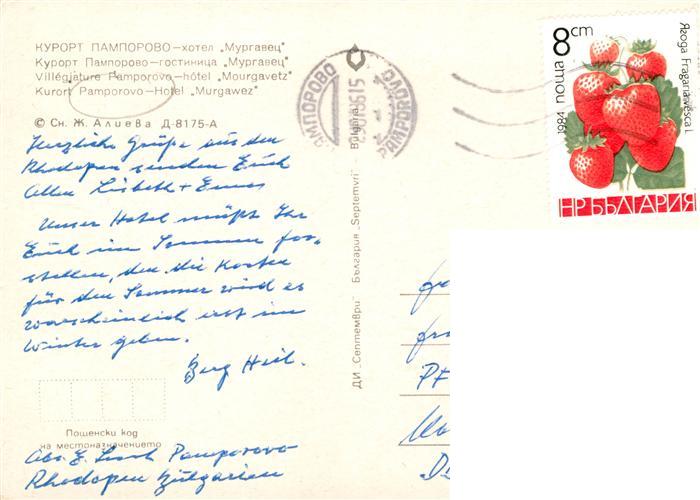 КУРОРТ ПАМПОРОВО—хотел „Мургавец"
Курорт Пампорово—гостиница „Мургавец"
Villégiature Pamporovo—hôtel „Mourgavetz"
Kurort Pamporovo—Hotel „Murgawez"
© Сн. Ж. Алиева Д-8175-А
Herzliche Grüße aus den
Rhodopen senden Euch
Allen Lisbeth +
Unser Hotel müßt Ihr
Euch im Sommer vor-
stellen, den die Karten
für den Sommer wird es
warscheinlich erst im
Winter geben.
Berg Heil.
Пощенски код
на местоназначението
Abs. E. Pamporovo
Rhodopen Bulgarien
ДИ „Септември" България „Septemvri" Bulgaria
ПАМПОРОВО
PAMPOROVO
8 cm
поща
1984
Ягода Fragaria vesca L
НР БЪЛГАРИЯ